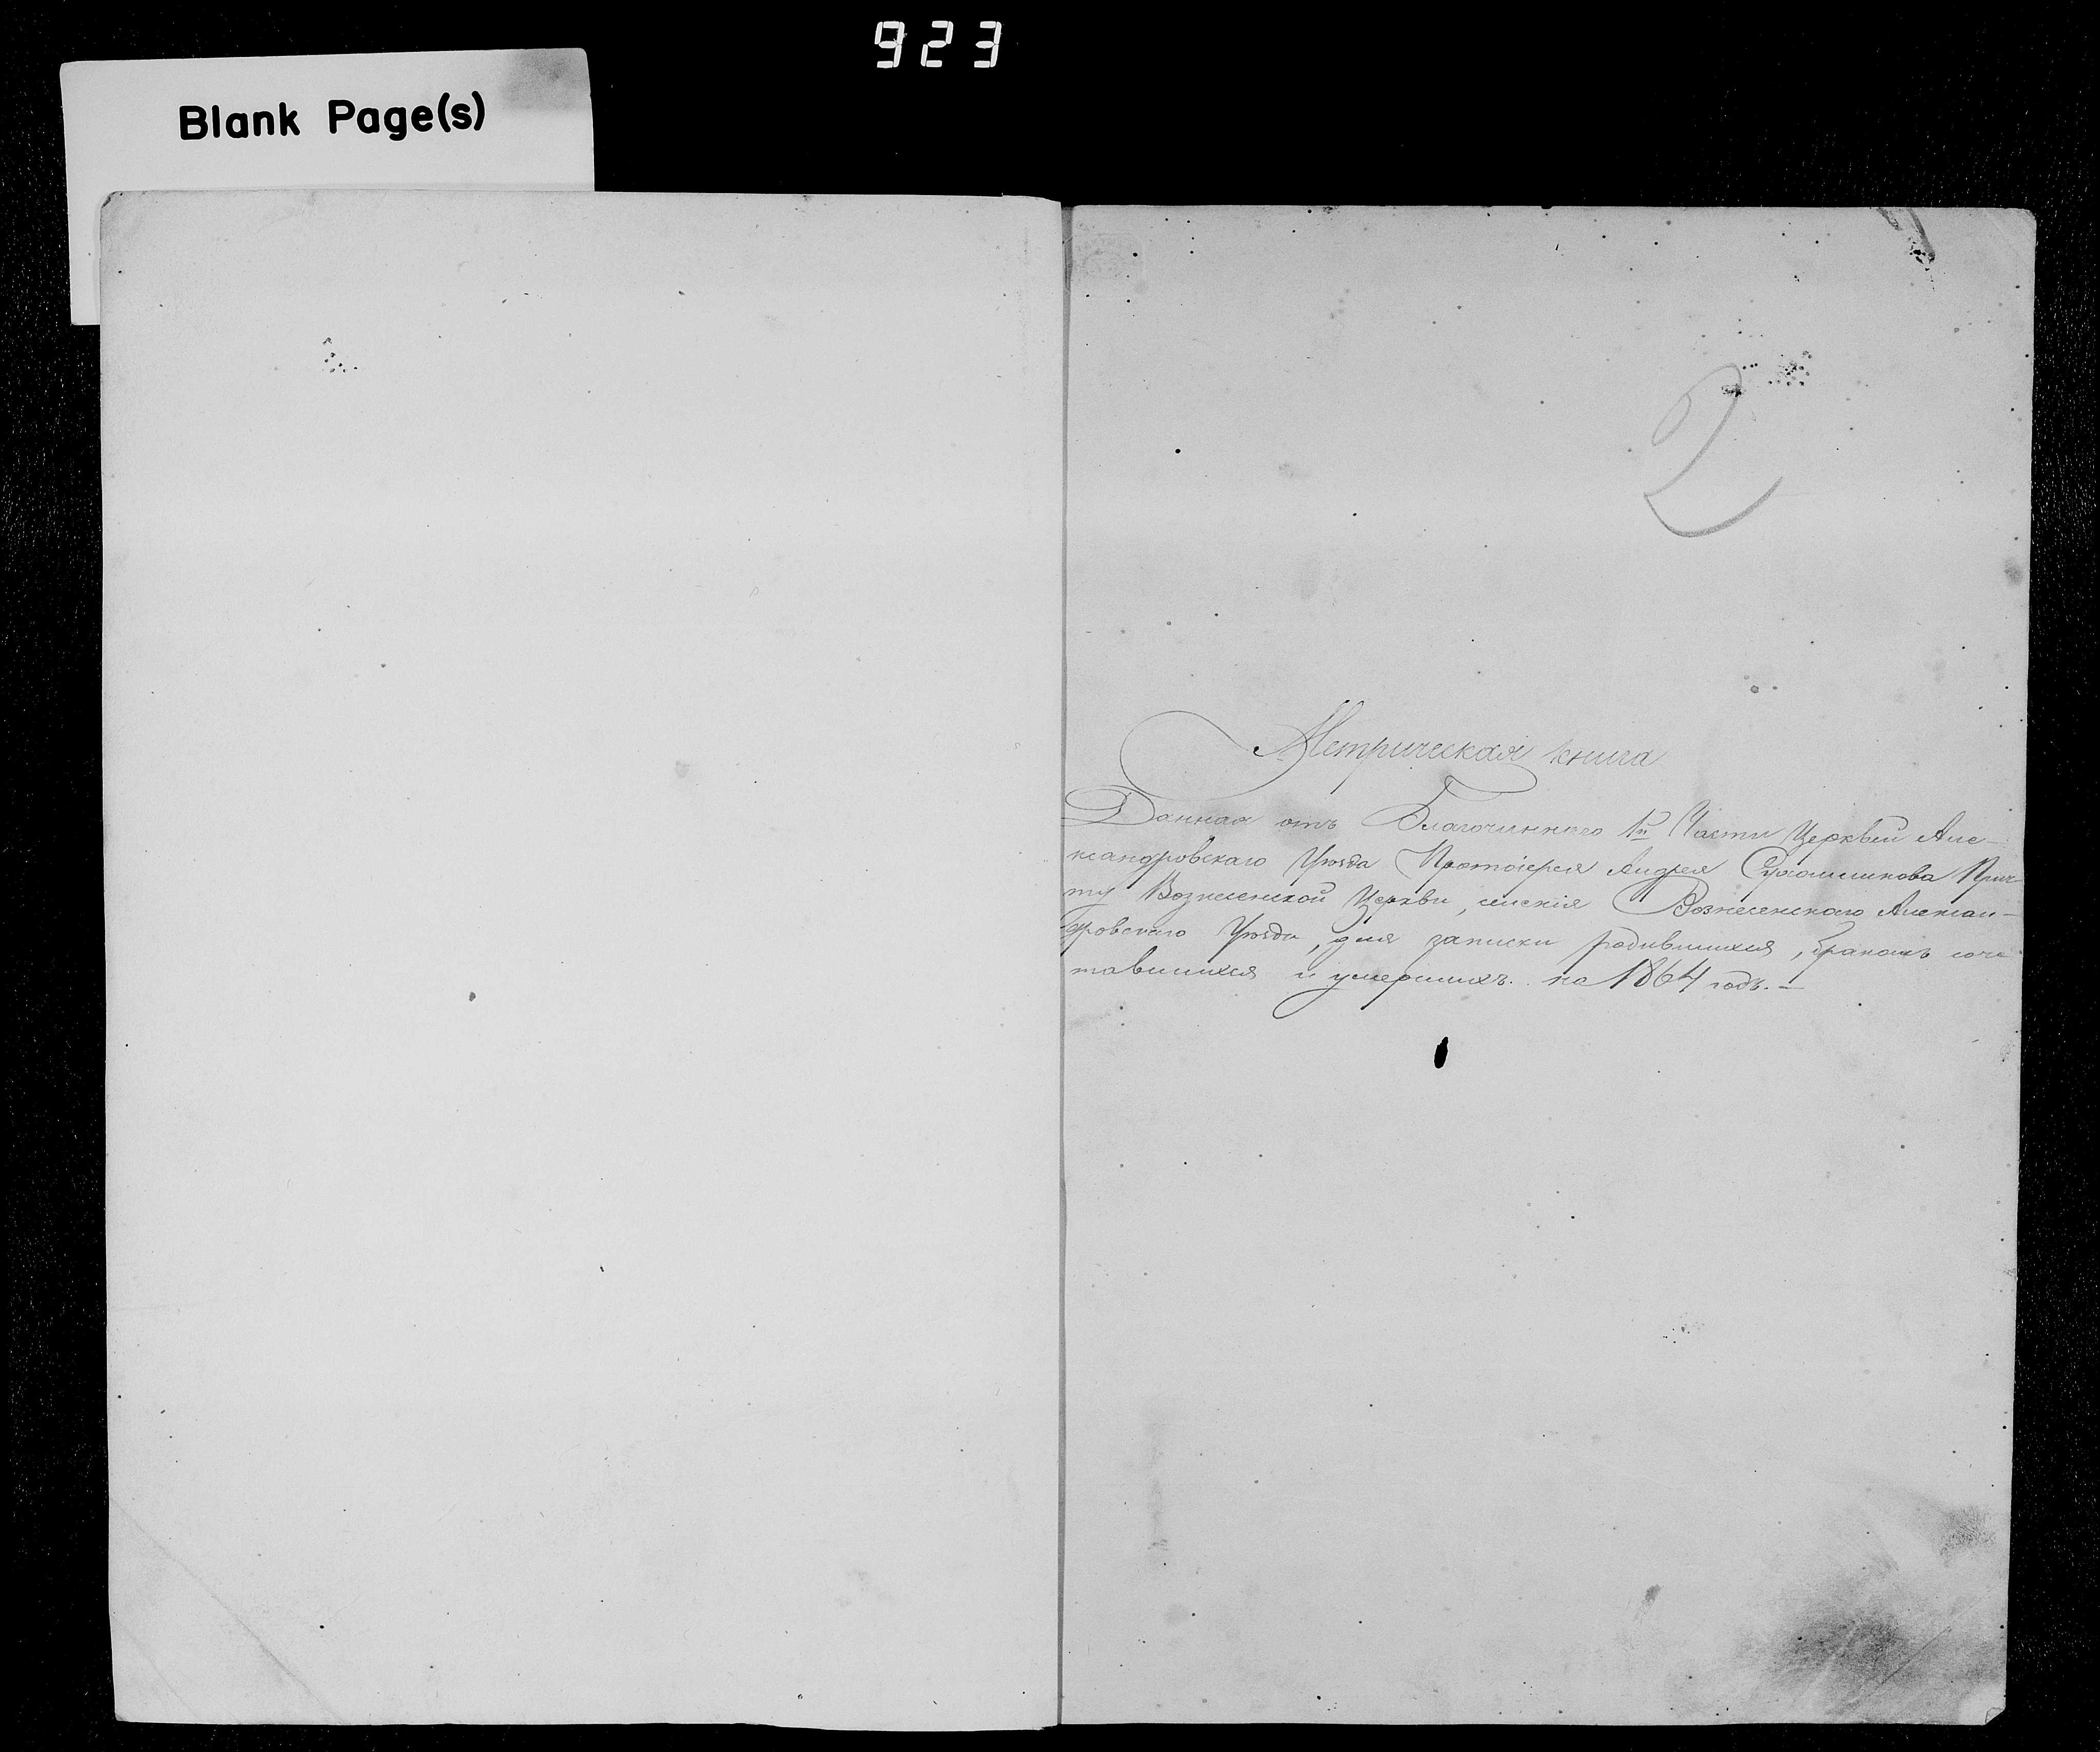 923
Blank Page(s)
2
Метрическая книга
Данная отъ Благочиннаго 1й Части Церквей Але-
ксандровскаго Уѣзда Протоіерея Андрея Прич-
ту Вознесенской Церкви, Вознесенскаго Алексан-
дровскаго Уѣзда, для записки родившихся, бракомъ соче
тавшихся и умершихъ. на 1864 годъ. —